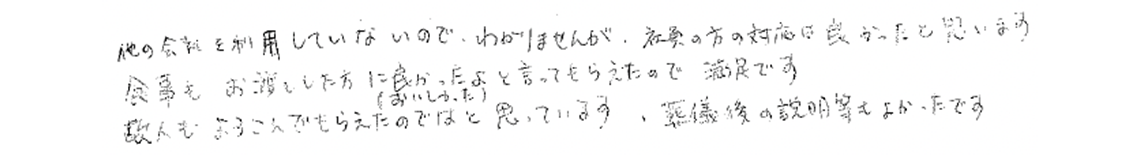 他の会社を利用していないので、わかりませんが、社員の方の対応は良かったと思います
食事も お渡しした方に良かったよと言ってもらえたので 満足です
(おいしかった)
故人も よろこんでもらえたのではと思っています、葬儀後の説明等もよかったです